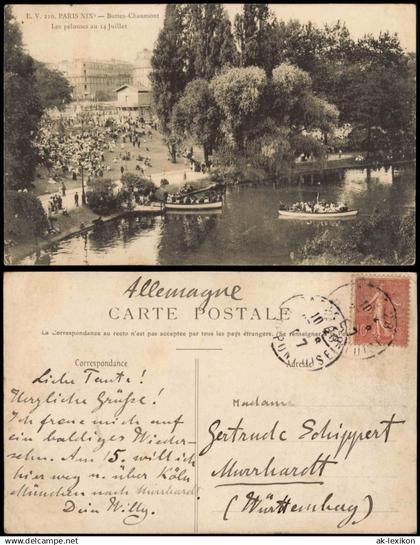 E. V. 210. PARIS XIXe — Buttes-Chaumont
Les pelouses au 14 Juillet
Allemagne
CARTE POSTALE
La Correspondance au recto n'est pas acceptée par tous les pays étrangers. (Se renseigner
Correspondance
Adresse
Liebe Tante!
Herzliche Grüße!
Ich freue mich auf
ein baldiges Wieder-
sehn. Am 15. will ich
hier weg u. über Köln
München nach Murrhardt
Dein Willy.
Madame
Gertrude Schippert
Murrhardt
(Württemberg)
ak-lexikon
© ak-lexikon.com